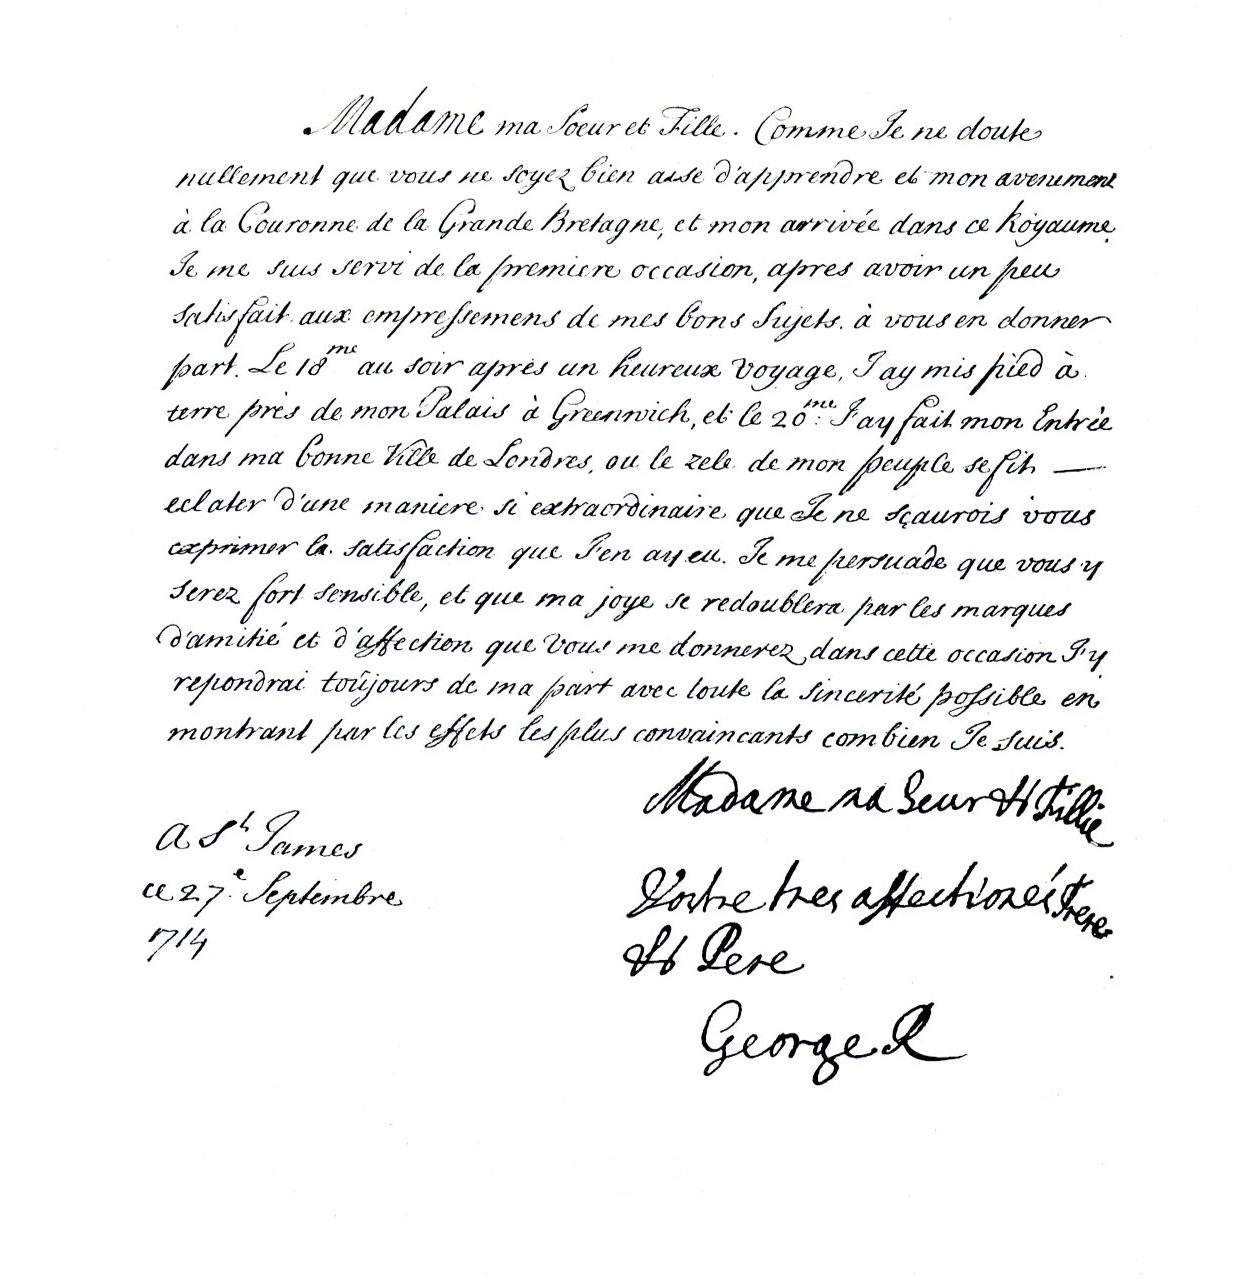 Madame ma Soeur et Fille. Comme Je ne doute
nullement que vous ne soyez bien aise d'apprendre et mon avenement
à la Couronne de la Grande Bretagne, et mon arrivée dans ce Royaume,
Je me suis servi de la premiere occasion, apres avoir un peu
satisfait aux empressemens de mes bons Sujets, à vous en donner
part. Le 18me au soir après un heureux Voyage, J'ay mis pied à
terre près de mon Palais à Greenwich, et le 20me: J'ay fait mon Entrée
dans ma bonne Ville de Londres, ou le zele de mon peuple se fit —
eclater d'une maniere si extraordinaire que Je ne sçaurois vous
exprimer la satisfaction que J'en ay eu. Je me persuade que vous y
serez fort sensible, et que ma joye se redoublera par les marques
d'amitié et d'affection que Vous me donnerez dans cette occasion J'y
repondrai toûjours de ma part avec toute la sincerité possible en
montrant par les effets les plus convaincants combien Je suis.
Madame ma Seur et Fillie
Vostre tres affectionés Frere
et Pere
George R
A St James
ce 27e Septembre
1714